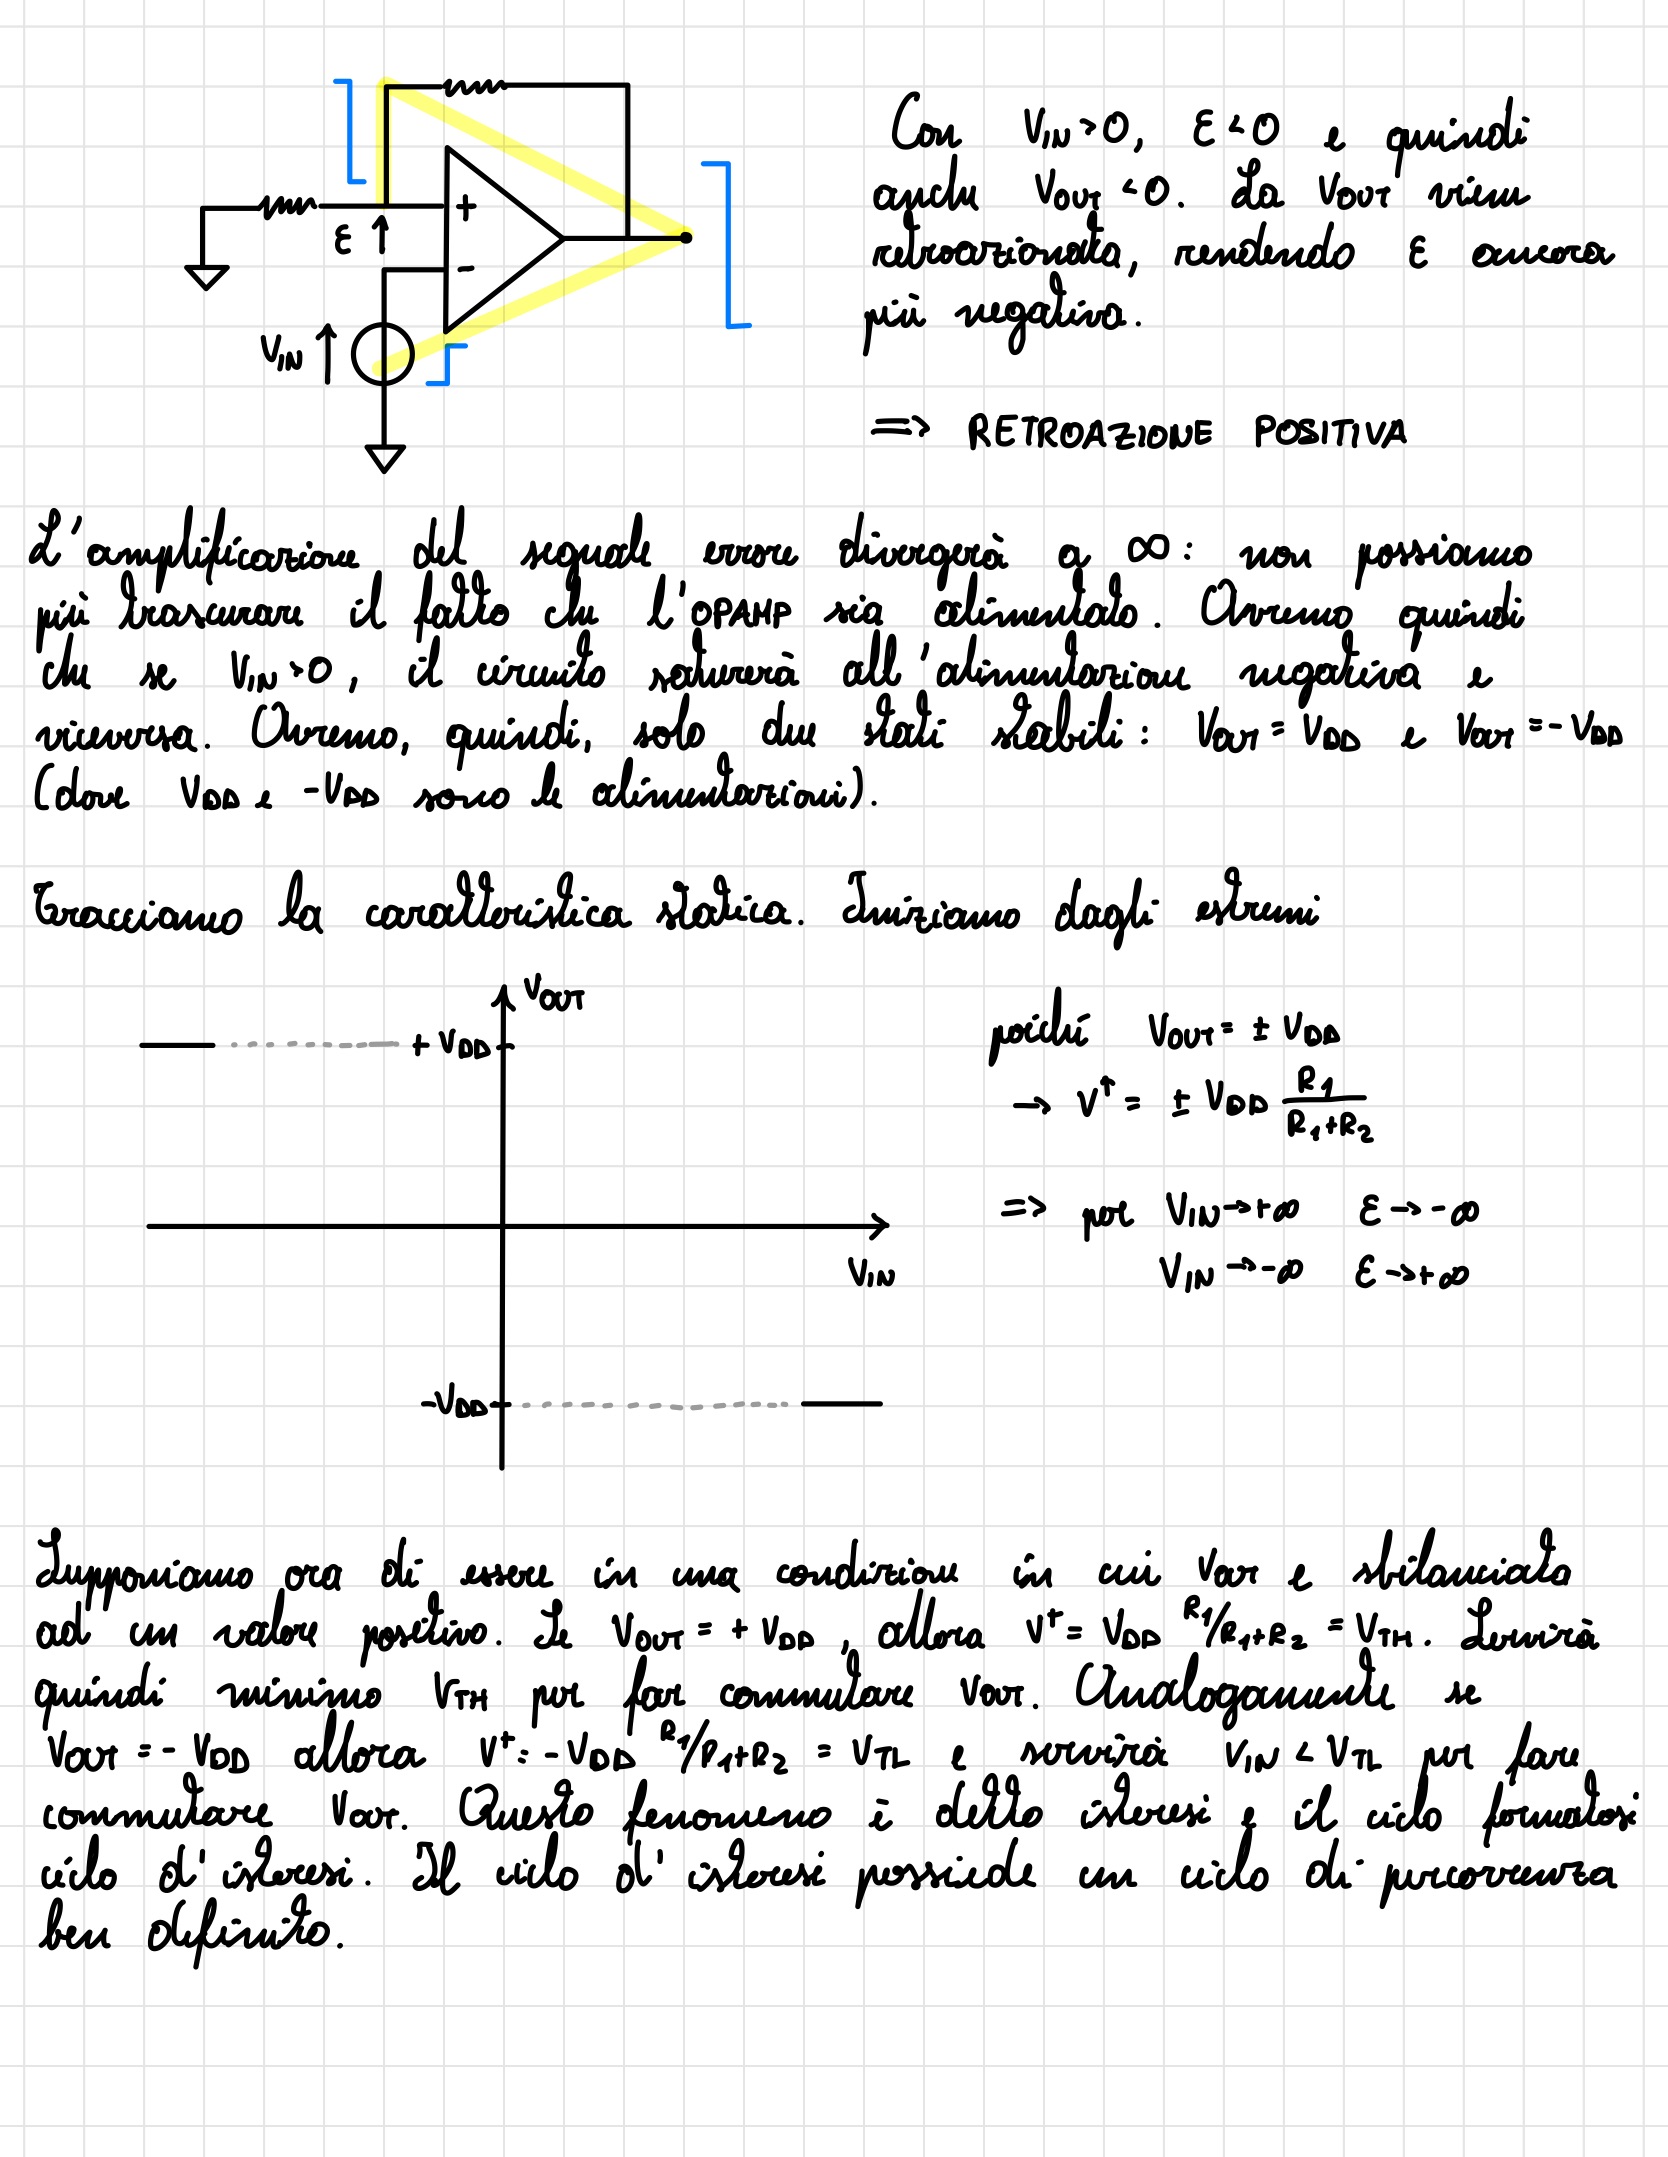 Con VIN>0, ε<0 e quindi
anche VOUT<0. La VOUT viene
retroazionata, rendendo ε ancora
più negativa.
=> RETROAZIONE POSITIVA
+
-
ε ↑
VIN ↑
L'amplificazione del segnale errore divergerà a ∞: non possiamo
più trascurare il fatto che l'OPAMP sia alimentato. Avremo quindi
che se VIN>0, il circuito saturerà all'alimentazione negativa e
viceversa. Avremo, quindi, solo due stati stabili: VOUT = VDD e VOUT = -VDD
(dove VDD e -VDD sono le alimentazioni).
Tracciamo la caratteristica statica. Iniziamo dagli estremi
VOUT
+ VDD
VIN
-VDD
poiché VOUT = ± VDD
→ V⁺ = ± VDD R1/(R1+R2)
=> per VIN→+∞ ε→-∞
VIN→-∞ ε→+∞
Supponiamo ora di essere in una condizione in cui VOUT e sbilanciata
ad un valore positivo. Se VOUT = + VDD, allora V⁺ = VDD R1/R1+R2 = VTH. Servirà
quindi minimo VTH per far commutare VOUT. Analogamente se
VOUT = - VDD allora V⁺ = - VDD R1/R1+R2 = VTL e servirà VIN < VTL per fare
commutare VOUT. Questo fenomeno è detto isteresi e il ciclo formatosi
ciclo d'isteresi. Il ciclo d'isteresi possiede un ciclo di percorrenza
ben definito.